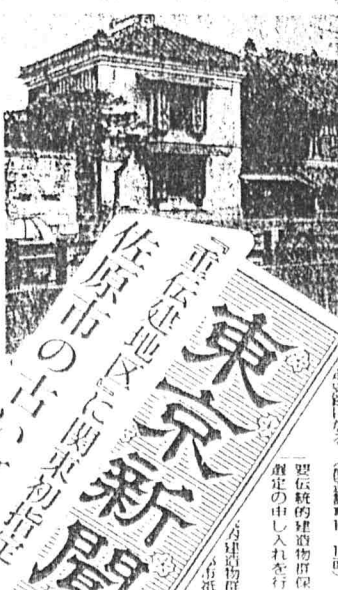 東京新聞
『重伝建地区』に関東初指定
佐原市の古い
要伝統的建造物群保
選定の申し入れを行
的建造物群